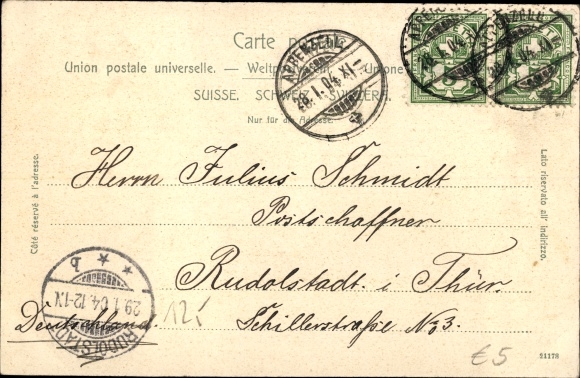 Carte postale
Union postale universelle. — Weltpostverein. — Unione
SUISSE. SCHWEIZ. SVIZZERA.
Nur für die Adresse.
APPENZELL
28.I.04.XI
APPENZELL
28.I.04.XI
APPENZELL
28.I.04.XI
Côté réservé à l'adresse.
Lato riservato all' indirizzo.
Herrn Julius Schmidt
Postschaffner
Rudolstadt i Thür.
Deutschland.
Schillerstraße No 3.
RUDOLSTADT
29.1.04.12-1N
* b *
12
€5
21178